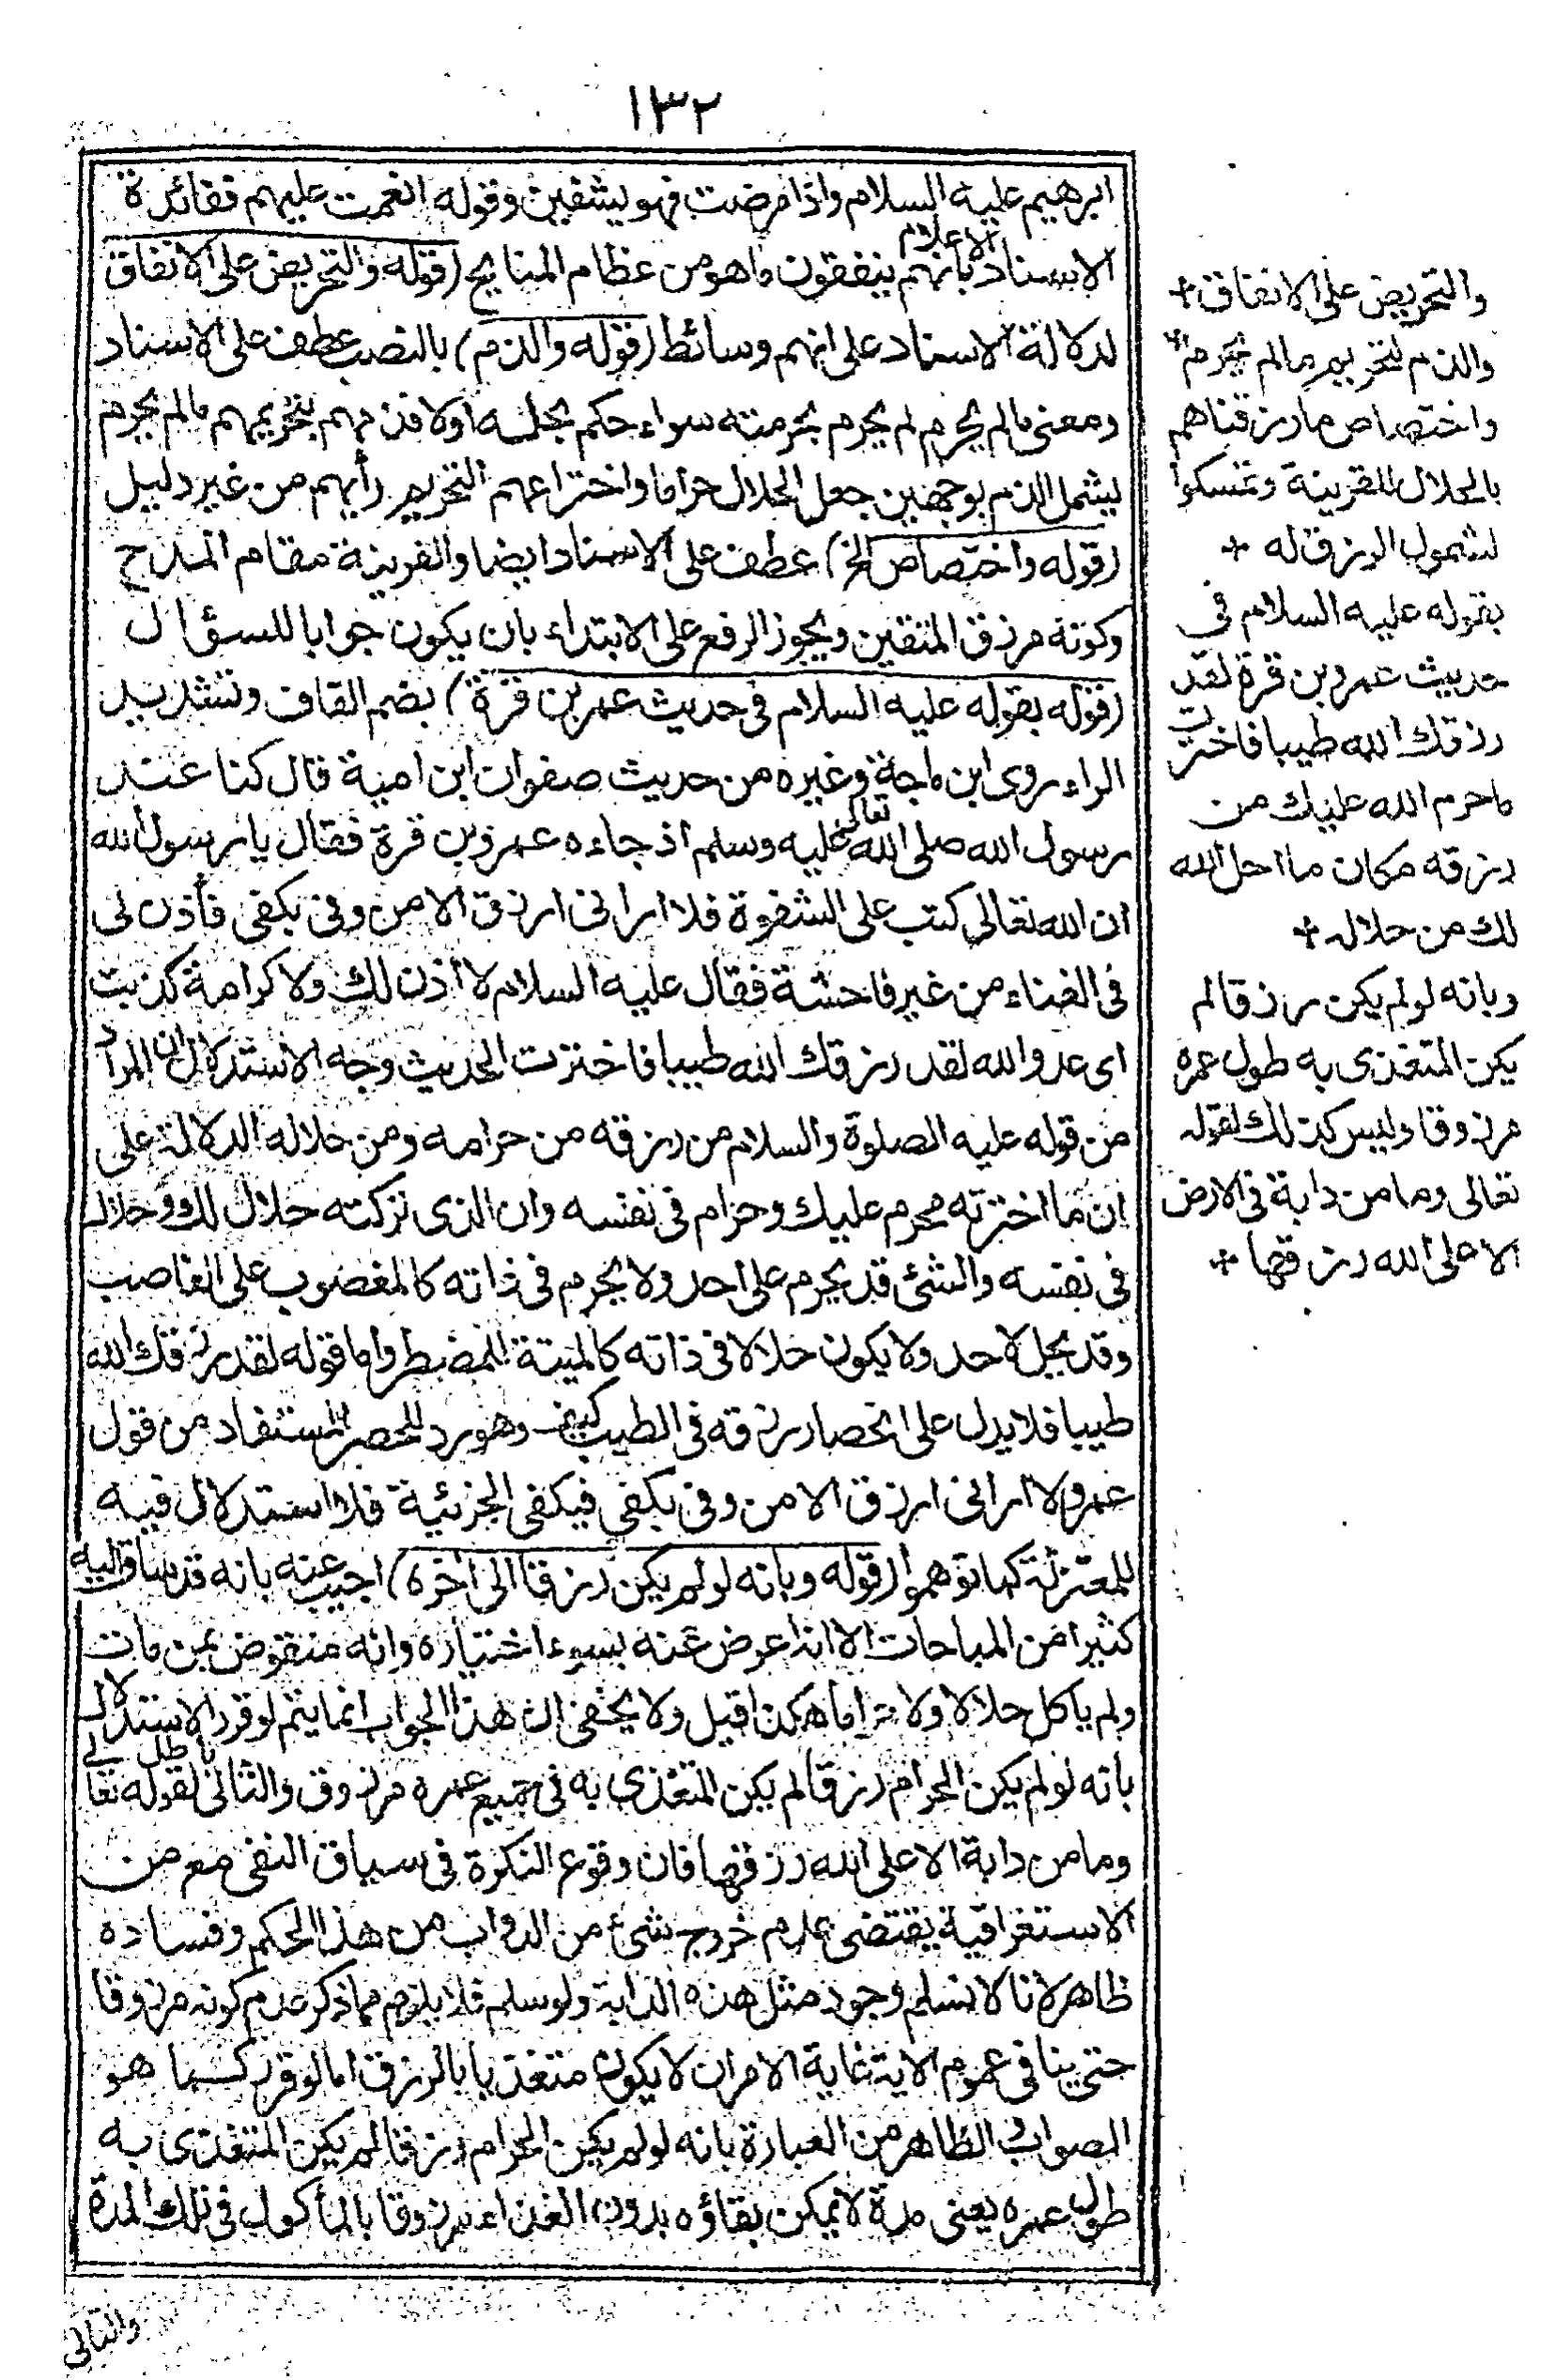 ١٣٢
ابرهيم عليه السلام واذا مرضت فهو يشفين وقوله انعمت عليهم ففائدة
الاسناد الاعلام بأنهم ينفقون ما هو من عظام المنايح (قوله والتحريض على الانفاق
لدلالة الاسناد على انهم وسائط (قوله والذم) بالنصب عطف على الاسناد
ومعنى مالم يحرم لم يحرم بحرمته سواء حكم بحله اولا فذمهم بتحريمهم مالم يحرم
ليشمل الذم بوجهين جعل الحلال حراما واختراعهم التحريم رأيهم من غير دليل
(قوله واختصاص الخ) عطف على الاسناد ايضا والقرينة مقام المدح
وكونه مرزق المتقين ويجوز الرفع على الابتداء بان يكون جوابا للسؤال
(قوله بقوله عليه السلام فى حديث عمر بن قرة) بضم القاف وتشديد
الراء روى ابن ماجة وغيره من حديث صفوان ابن امية قال كنا عند
رسول الله صلى الله تعالى عليه وسلم اذ جاءه عمرو بن قرة فقال يا رسول الله
ان الله تعالى كتب على الشقوة فلا ارانى ارزق الا من دفى بكفى فأذن لى
فى الغناء من غير فاحشة فقال عليه السلام لا أذن لك ولا كرامة كذبت
اى عدو الله لقد رزقك الله طيبا فاخترت الحديث وجه الاستدلال ان المراد
من قوله عليه الصلوة والسلام من رزقه من حرامه ومن حلاله الدلالة على
ان ما اخترته محرم عليك وحرام فى نفسه وان الذى تركته حلال لك وحلال
فى نفسه والشئ قد يحرم على احد ولا يحرم فى ذاته كالمغضوب على الغاصب
وقد يحل لاحد ولا يكون حلالا فى ذاته كالميتة للمضطر واما قوله لقد رزقك الله
طيبا فلا يدل على انحصار رزقه فى الطيب كيف وهو رد للحصر المستفاد من قول
عمرو لا ارانى ارزق الا من دفى بكفى فيكفى الجزئية فلا استدلال فيه
للمعتزلة كما توهموا (قوله وبانه لو لم يكن رزقا الى أخره) اجيب عنه بانه قد ساق اليه
كثيرا من المباحات الا انه اعرض عنه بسوء اختياره وانه منقوض بمن مات
ولم ياكل حلالا ولا حراما هكذا قيل ولا يخفى ان هذا الجواب انما يتم لو قرر الاستدلال
بانه لو لم يكن الحرام رزقا لم يكن المتغذى به فى جميع عمره مرزوق والتالى باطل لقوله تعالى
وما من دابة الا على الله رزقها فان وقوع النكرة فى سياق النفى مع من
الاستغراقية يقتضى عدم خروج شئ من الدواب من هذا الحكم وفساده
ظاهر لانا لا نسلم وجود مثل هذه الدابة ولو سلم فلا يلزم مما ذكر عدم كونه مرزوقا
حتى ينافى عموم الاية غاية الامر ان لا يكون متغذيا بالرزق اما لو قرر كما هو
الصواب الظاهر من العبارة بانه لو لم يكن الحرام رزقا لم يكن المتغذى به
طول عمره يعنى مدة لا يمكن بقاؤه بدون الغذاء مرزوقا بالمأكول فى تلك المدة
والتالى
والتحريض على الانفاق +
والذم لتحريم مالم يحرم
واختصاص مارزقناهم
بالحلال للقرينة وتمسكوا
لشمول الرزق له +
بقوله عليه السلام فى
حديث عمرو بن قرة لقد
رزقك الله طيبا فاخترت
ما حرم الله عليك من
رزقه مكان ما احل الله
لك من حلاله +
وبانه لو لم يكن رزقا لم
يكن المتغذى به طول عمره
مرزوقا وليس كذلك لقوله
تعالى وما من دابة فى الارض
الا على الله رزقها +